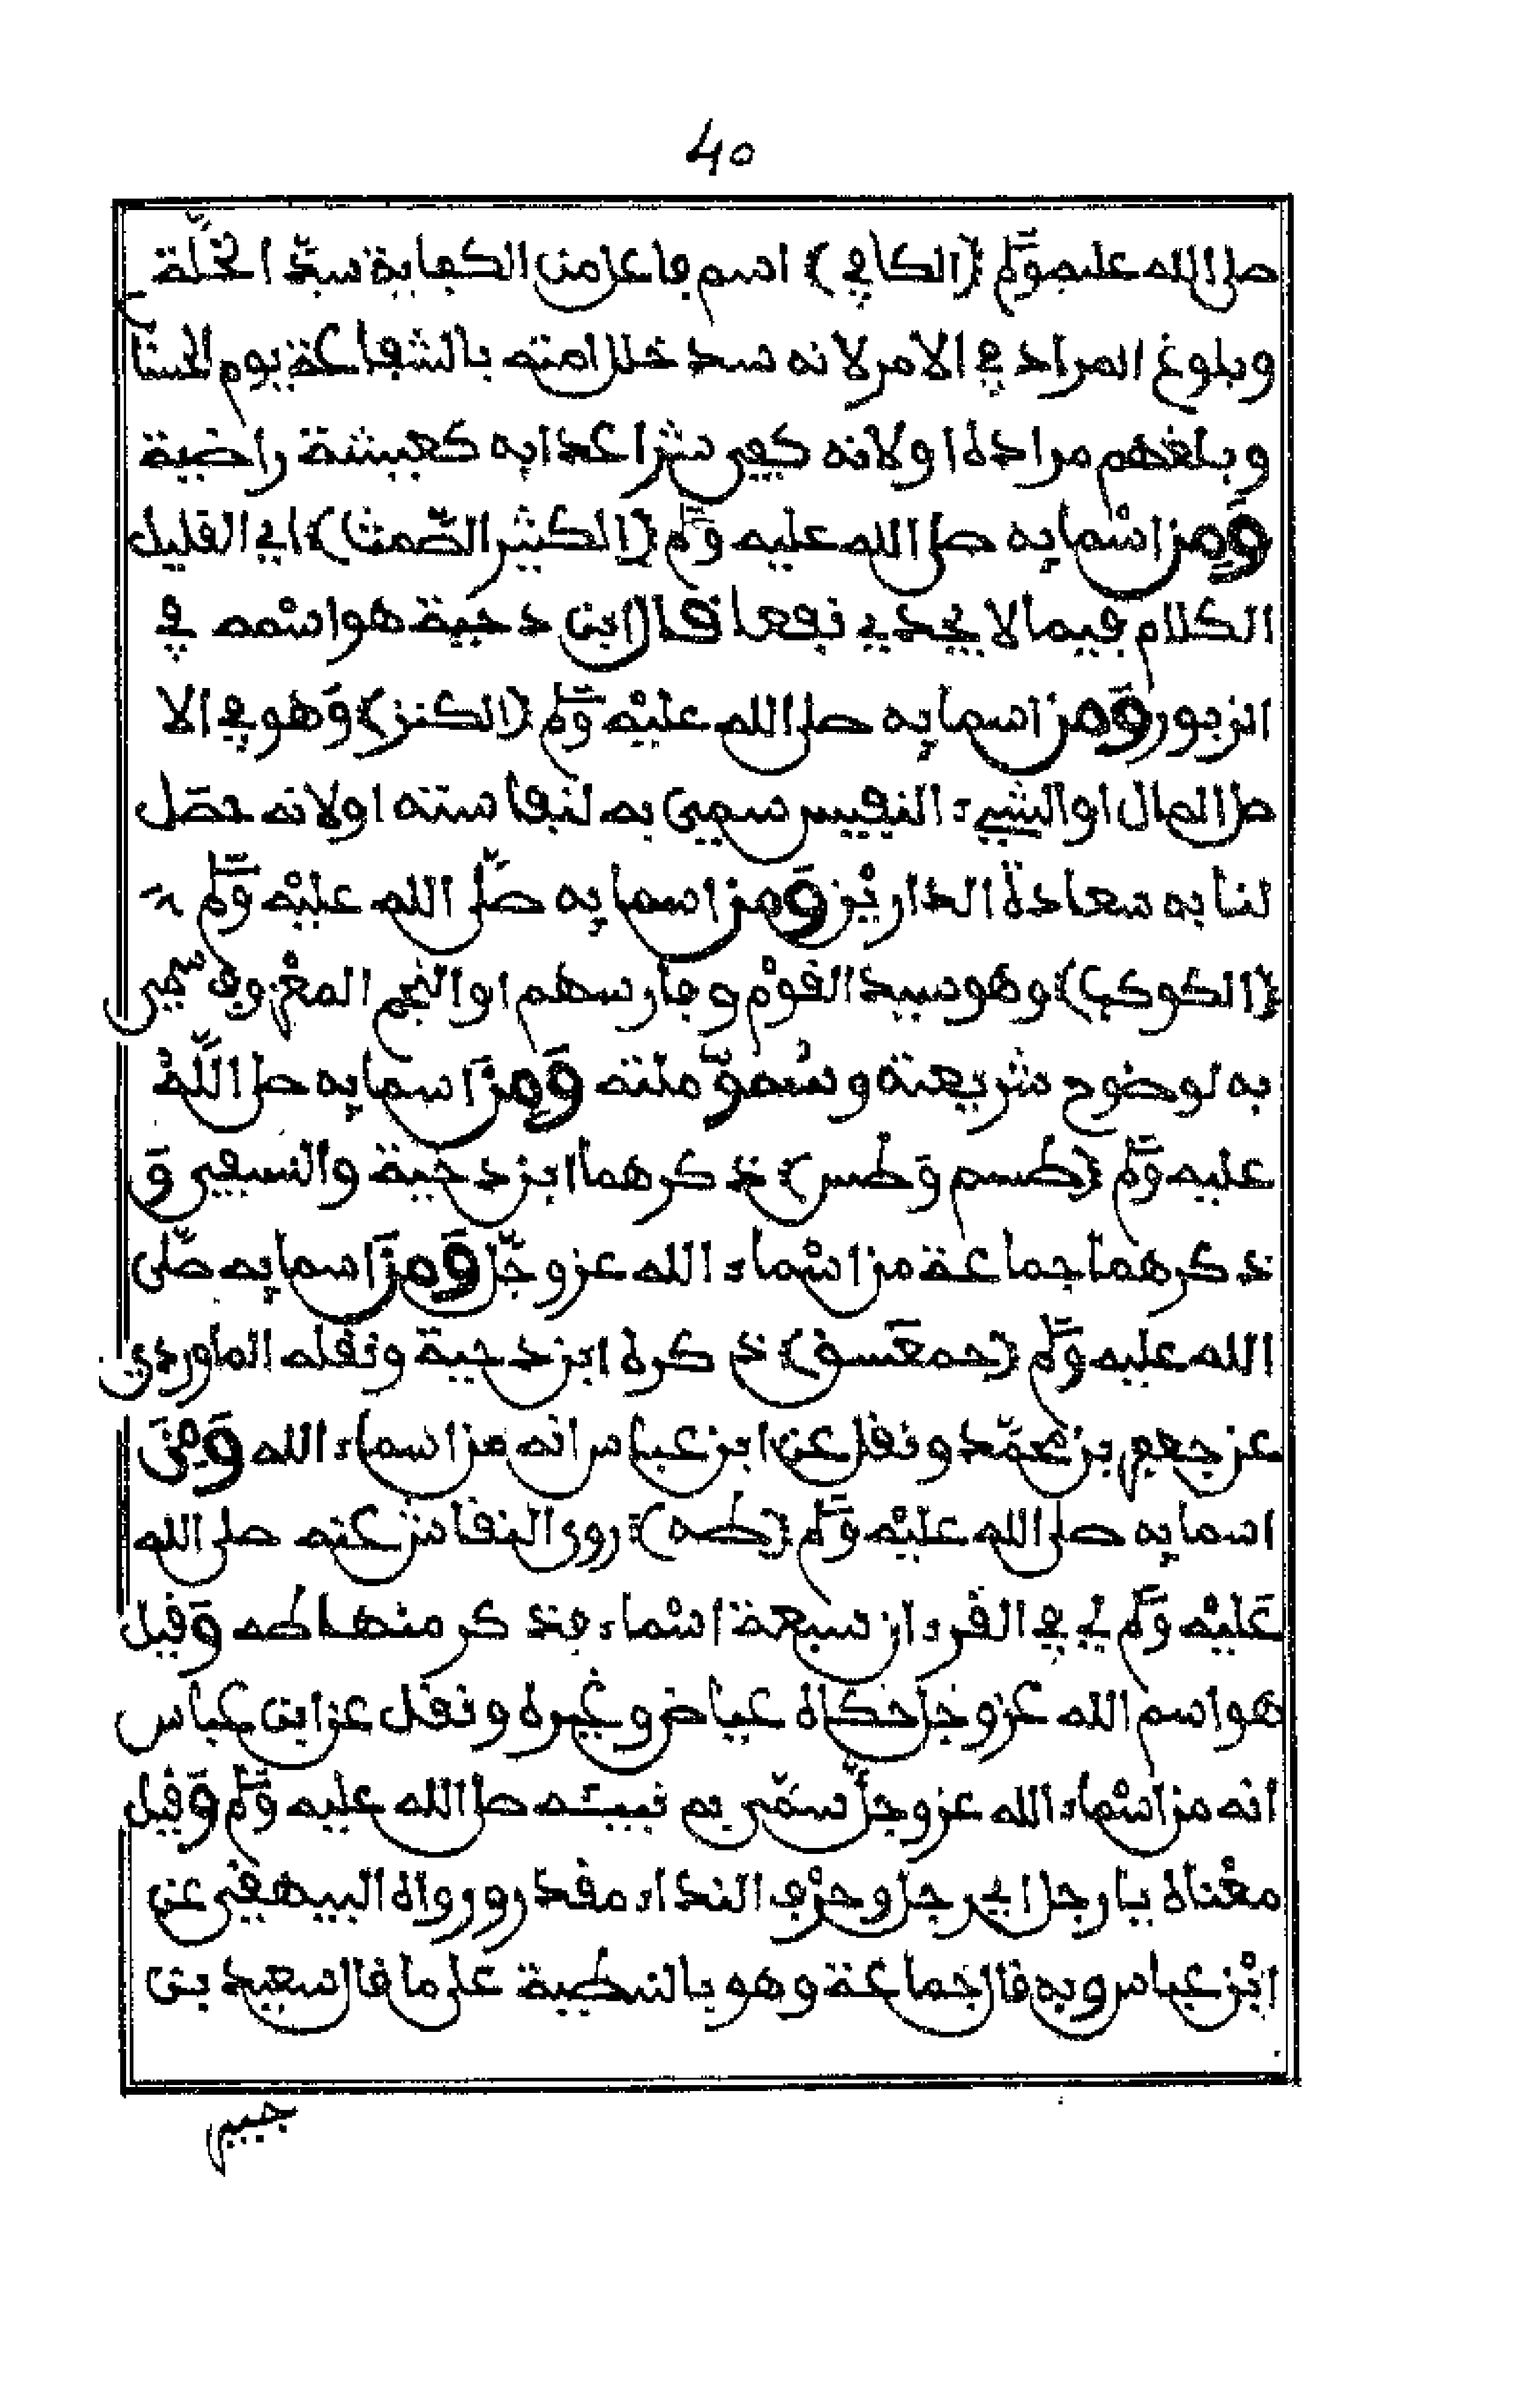 40
صلى الله عليه وسلم (الكافي) اسم فاعل من الكفاية سدّ الخلّة
وبلوغ المراد في الامر لانه سد خلل امته بالشفاعة يوم الحساب
وبلغهم مراده او لانه كفى شر اعدايه كعيشة راضية
وَمِن اسْمايه صلى الله عليه وسلم (الكثير الصّمت) اي القليل
الكلام فيما لا يجدي نفعا قال ابن دحية هو اسْمه في
الزبور وَمن اسمايه صلى الله عليْه وسلم (الكنز) وَهو في الا
صل المال او الشيء النفيس سمي به لنفاسته او لانه حصَل
لنا به سعادة الداريْن وَمن اسمايه صلّى الله عليْه وسلم
(الكوكب) وهو سيد القوْم وفارسهم او النجم المعْروف سمي
به لوضوح شريعته وسُموّ ملته وَمِنَ اسمايه صلى اللَّه
عليه وسلم (طسم وَطس) ذكرهما ابن دحية والنسفي وَ
ذكرهما جماعة من اسْماء الله عز وجلّ وَمنَ اسمايه صلّى
الله عليه وسلم (حمعَسق) ذكره ابن دحية ونقله الماوردي
عن جعفر بن محمّد ونقل عن ابن عباس انه من اسماء الله وَمِنَ
اسمايه صلى الله عليْه وسلم (طه) روى النقاش عنه صلى الله
عَليْه وسلم لي في القرءان سبعة اسْماء فذكر منها طه وَقيل
هو اسم الله عز وجل حكاه عياض وغيره ونقل عن ابن عباس
انه من اسْماء الله عز وجلّ سمّى به نبيئه صلى الله عليه وسلم وَقيل
معْناه يا رجل اي رجل وحرْف النداء مقدر ورواه البيهقي عن
ابْن عباس وبه قال جماعة وهو بالنبطية عَلى ما قال سعيد بن
جبير